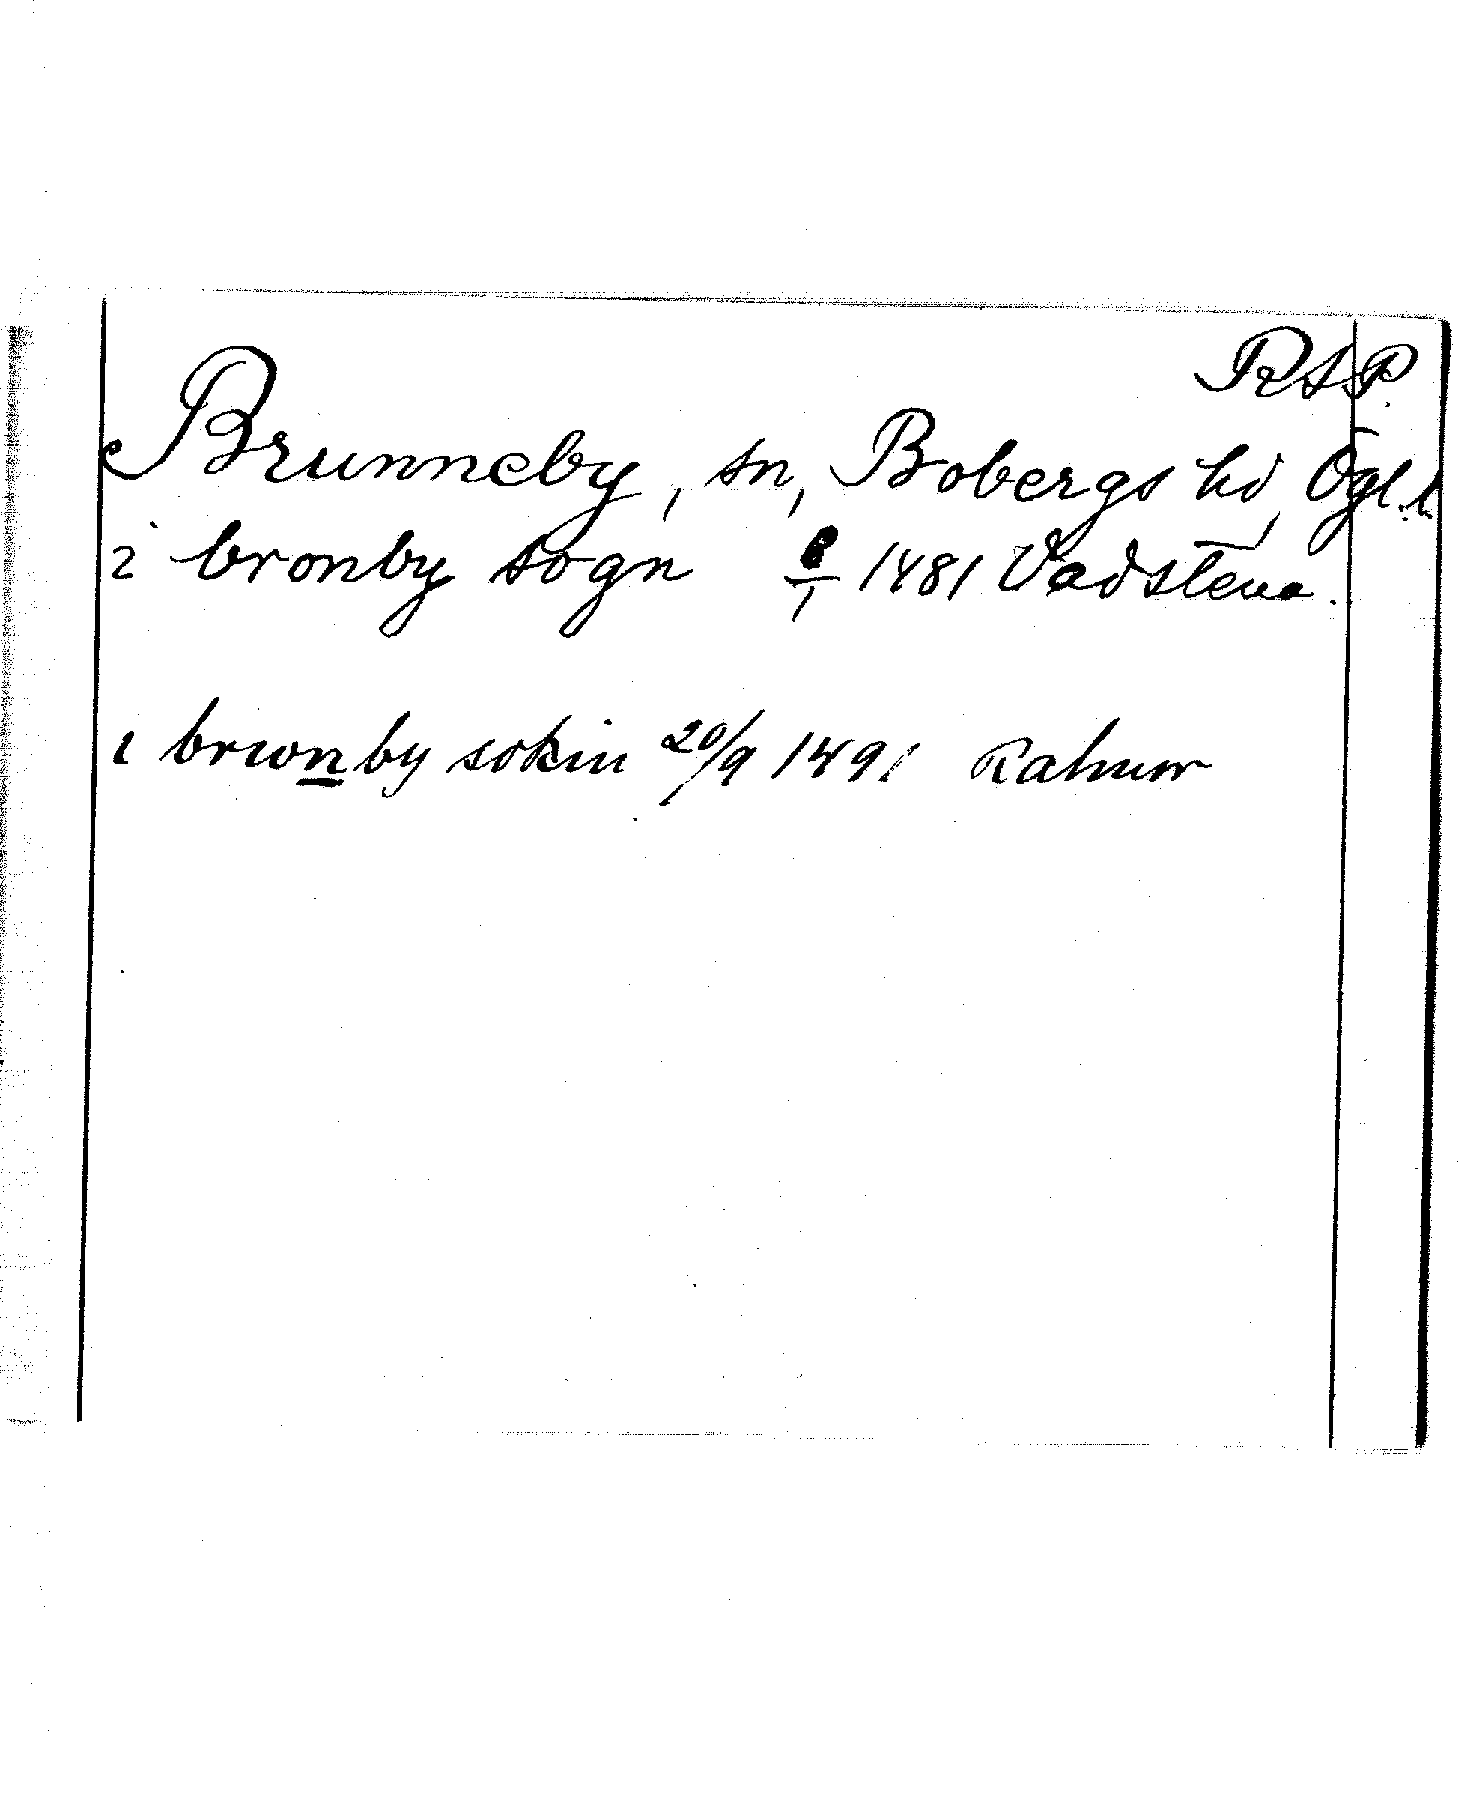 RAP.
Brunneby, sn, Bobergs hd, Ögl. l
i bronby sogn 8/1 1481 Vadstena.
i brwnby sokin 20/9 1491 Kalmar